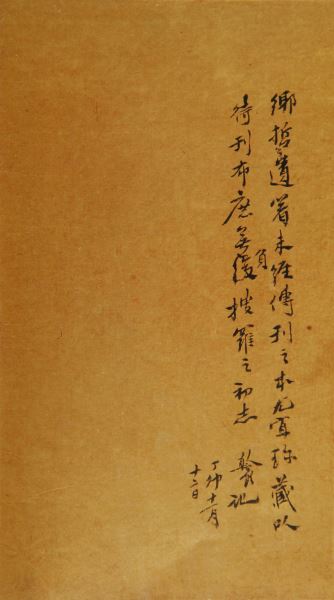 鄉哲遺著未經傳刊之本尤宜珍藏以
待刊布庶無負搜羅之初志 記
丁卯十一月
十二日